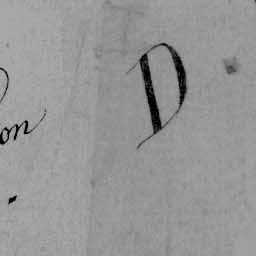 on D